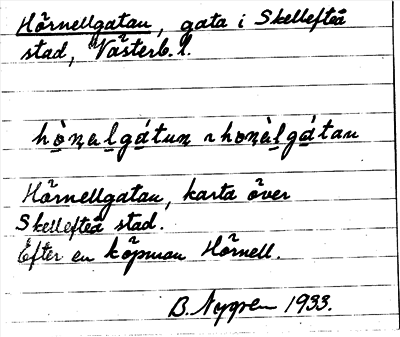 Hörnellgatan, gata i Skellefteå
stad, Västerb. l.
hònalgátun ~ honàlgátan
Hörnellgatan, karta över
Skellefteå stad.
Efter en köpman Hörnell.
B. Nygren 1933.